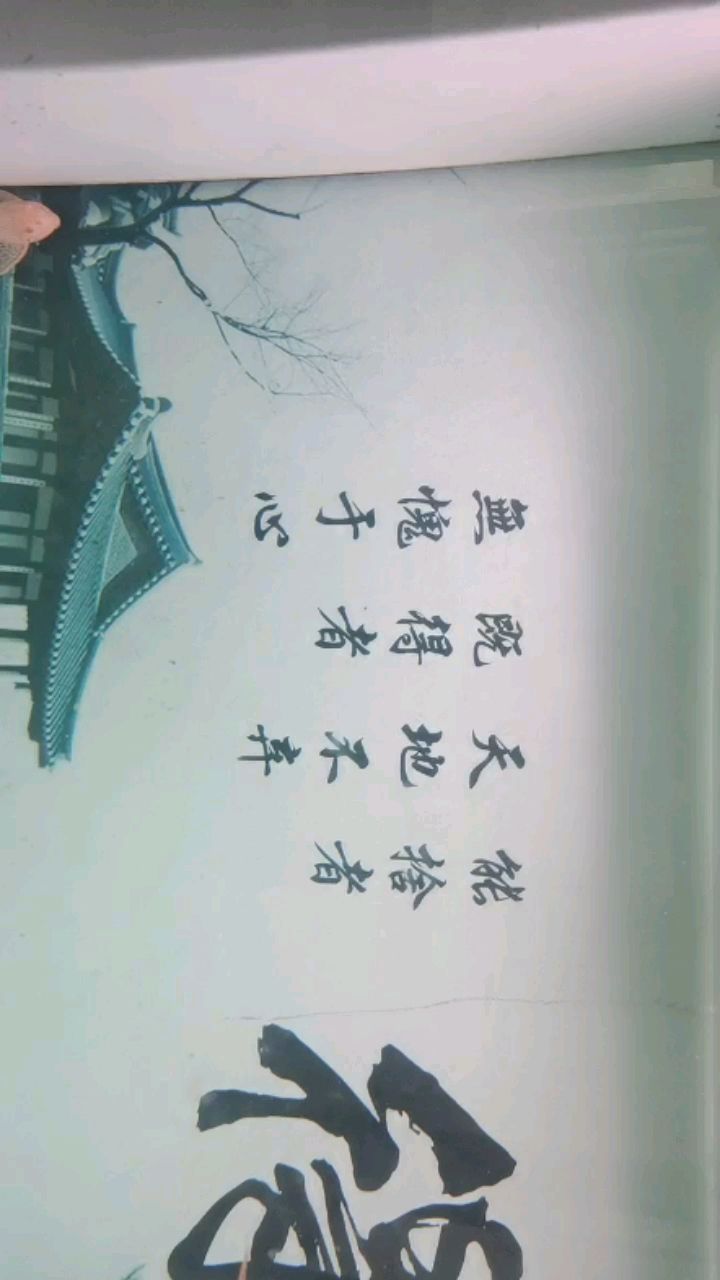 得
能捨者
天地不弃
既得者
無愧于心